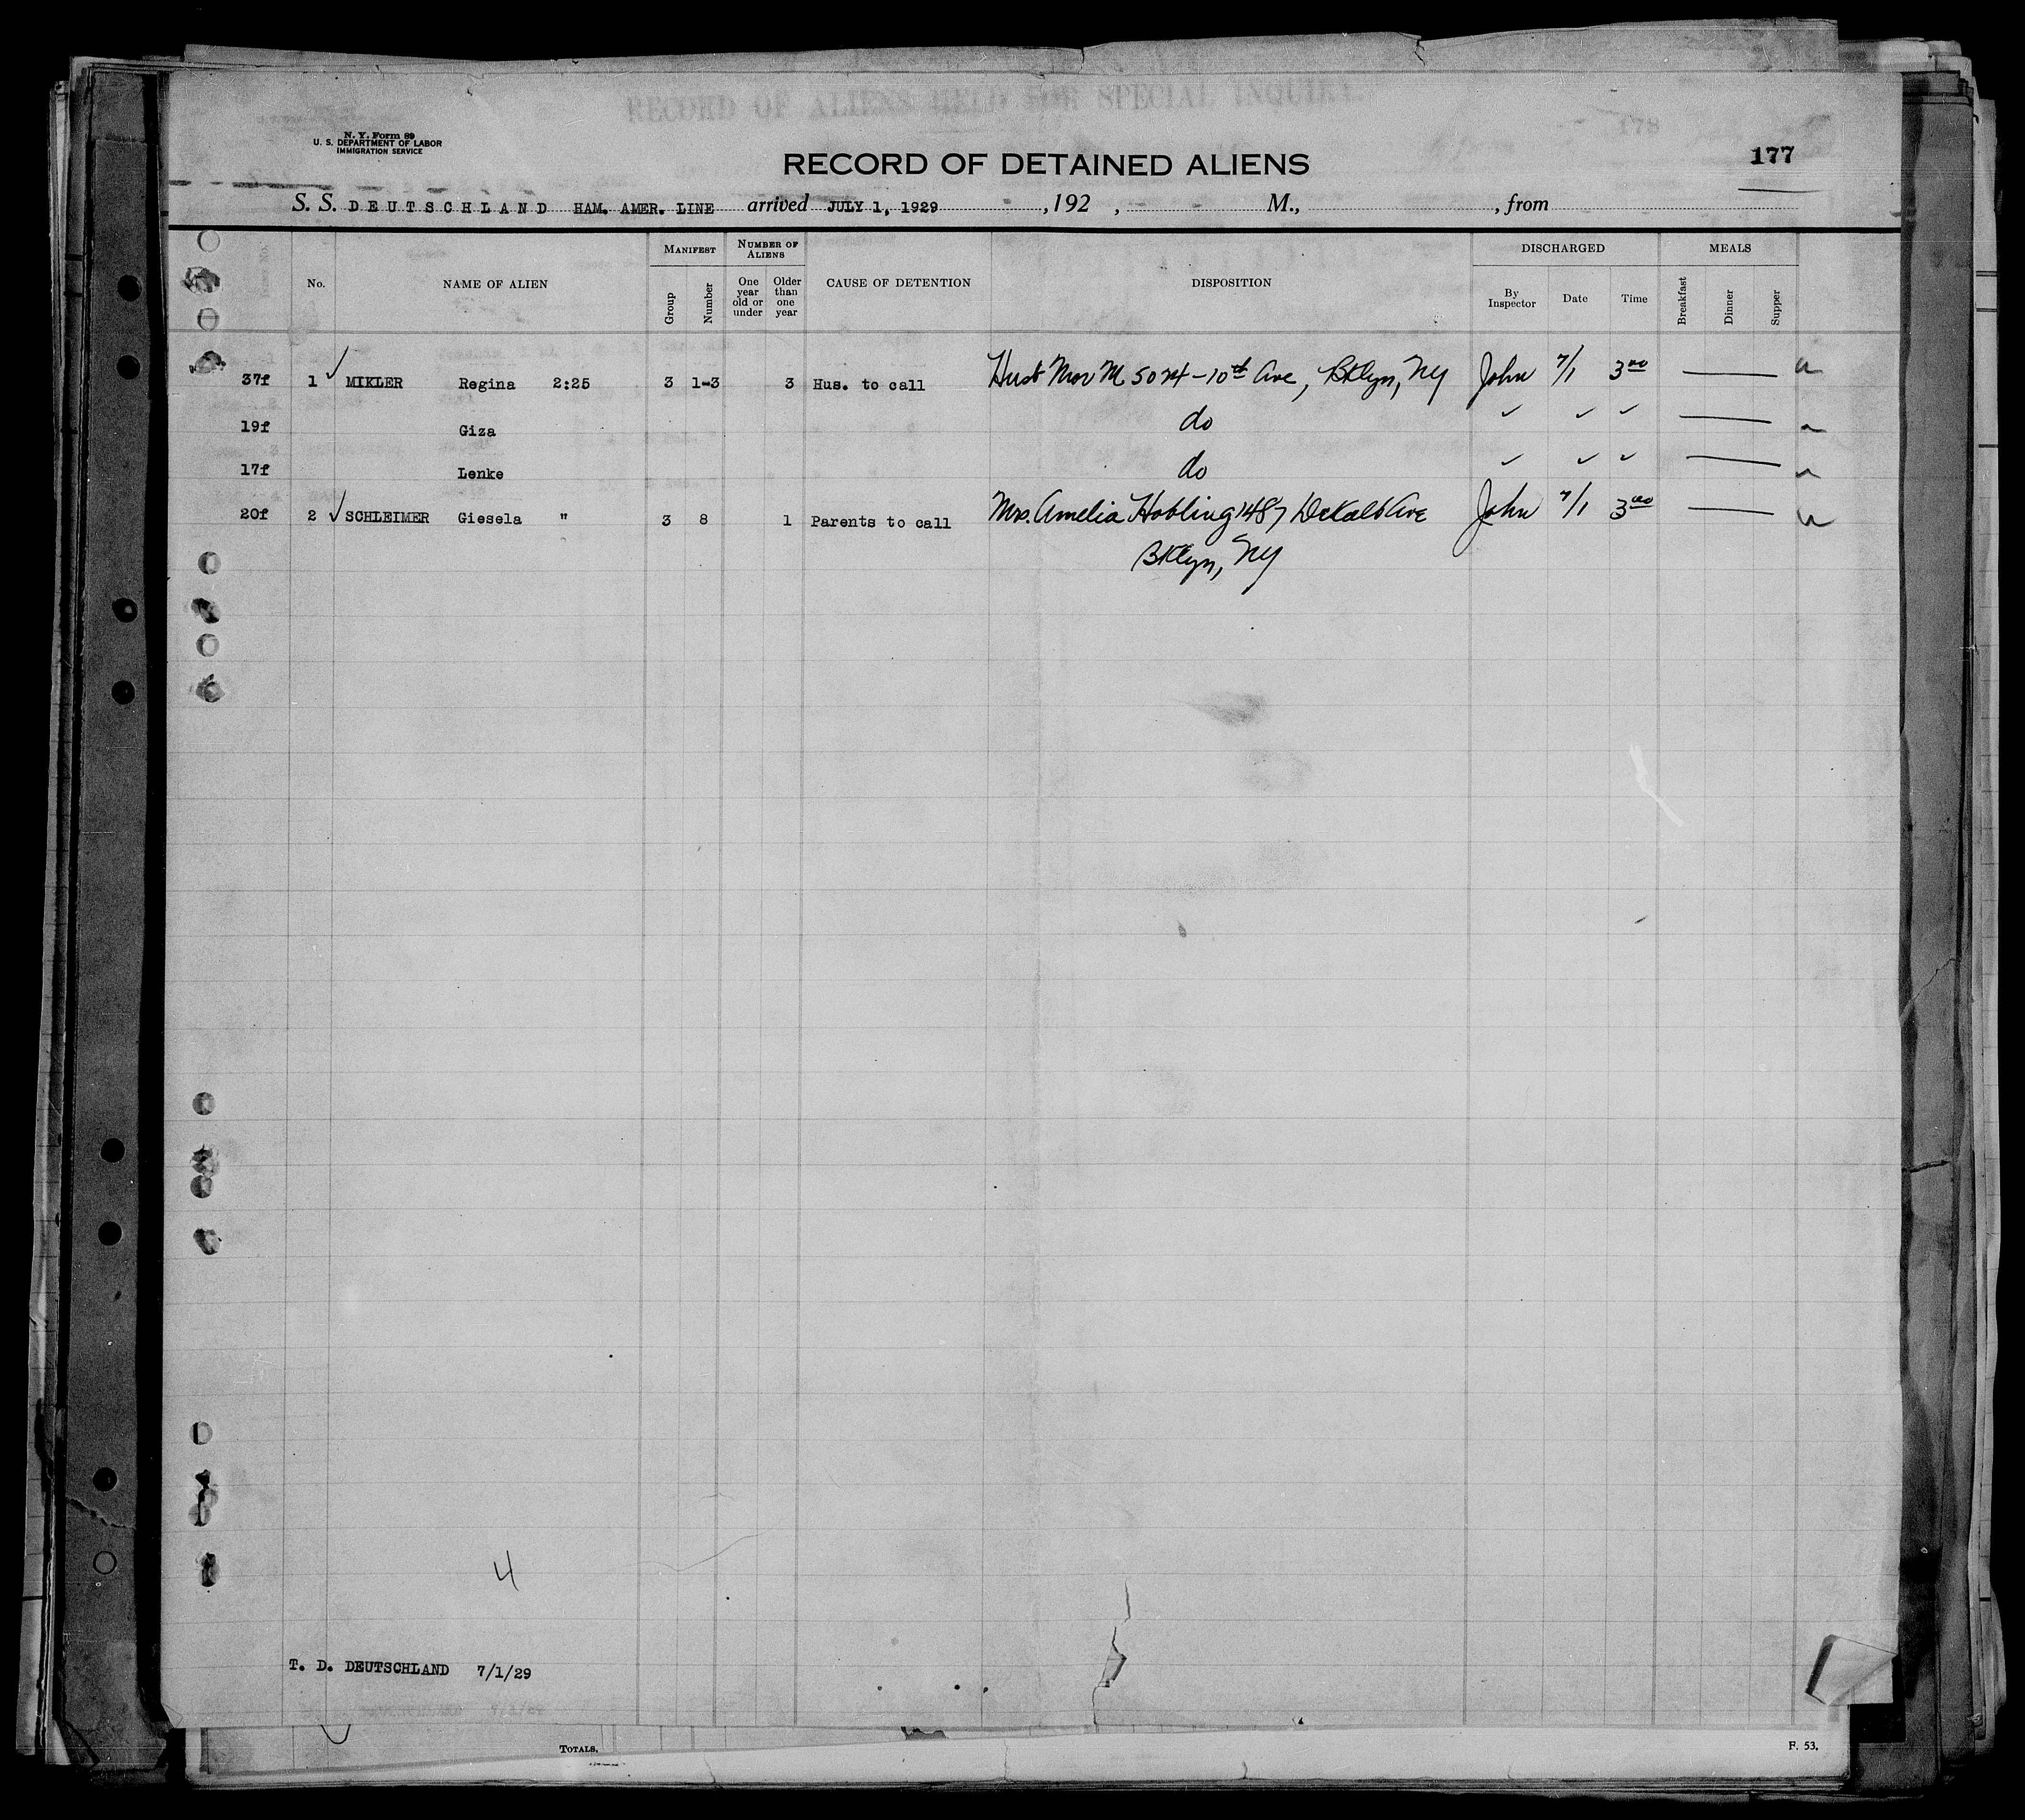 RECORD OF ALIENS HELD FOR SPECIAL INQUIRY
178
N. Y. Form 89
U. S. DEPARTMENT OF LABOR
IMMIGRATION SERVICE
RECORD OF DETAINED ALIENS
177
S. S. DEUTSCHLAND HAM. AMER. LINE arrived JULY 1, 1929 , 192 , M., , from
No. NAME OF ALIEN MANIFEST Group Number NUMBER OF ALIENS One year old or under Older than one year CAUSE OF DETENTION DISPOSITION DISCHARGED By Inspector Date Time MEALS Breakfast Dinner Supper
37f 1 ✓ MIKLER Regina 2:25 3 1-3 3 Hus. to call Husb M 5024-10th Ave, Bklyn, NY John 7/1 3 00
19f Giza do ✓ ✓ ✓
17f Lenke do ✓ ✓ ✓
20f 2 ✓ SCHLEIMER Giesela " 3 8 1 Parents to call Mrs. Amelia Hobling 1487 DeKalb Ave John 7/1 3 00
Bklyn, NY
4
T. D. DEUTSCHLAND 7/1/29
TOTALS,
F. 53.